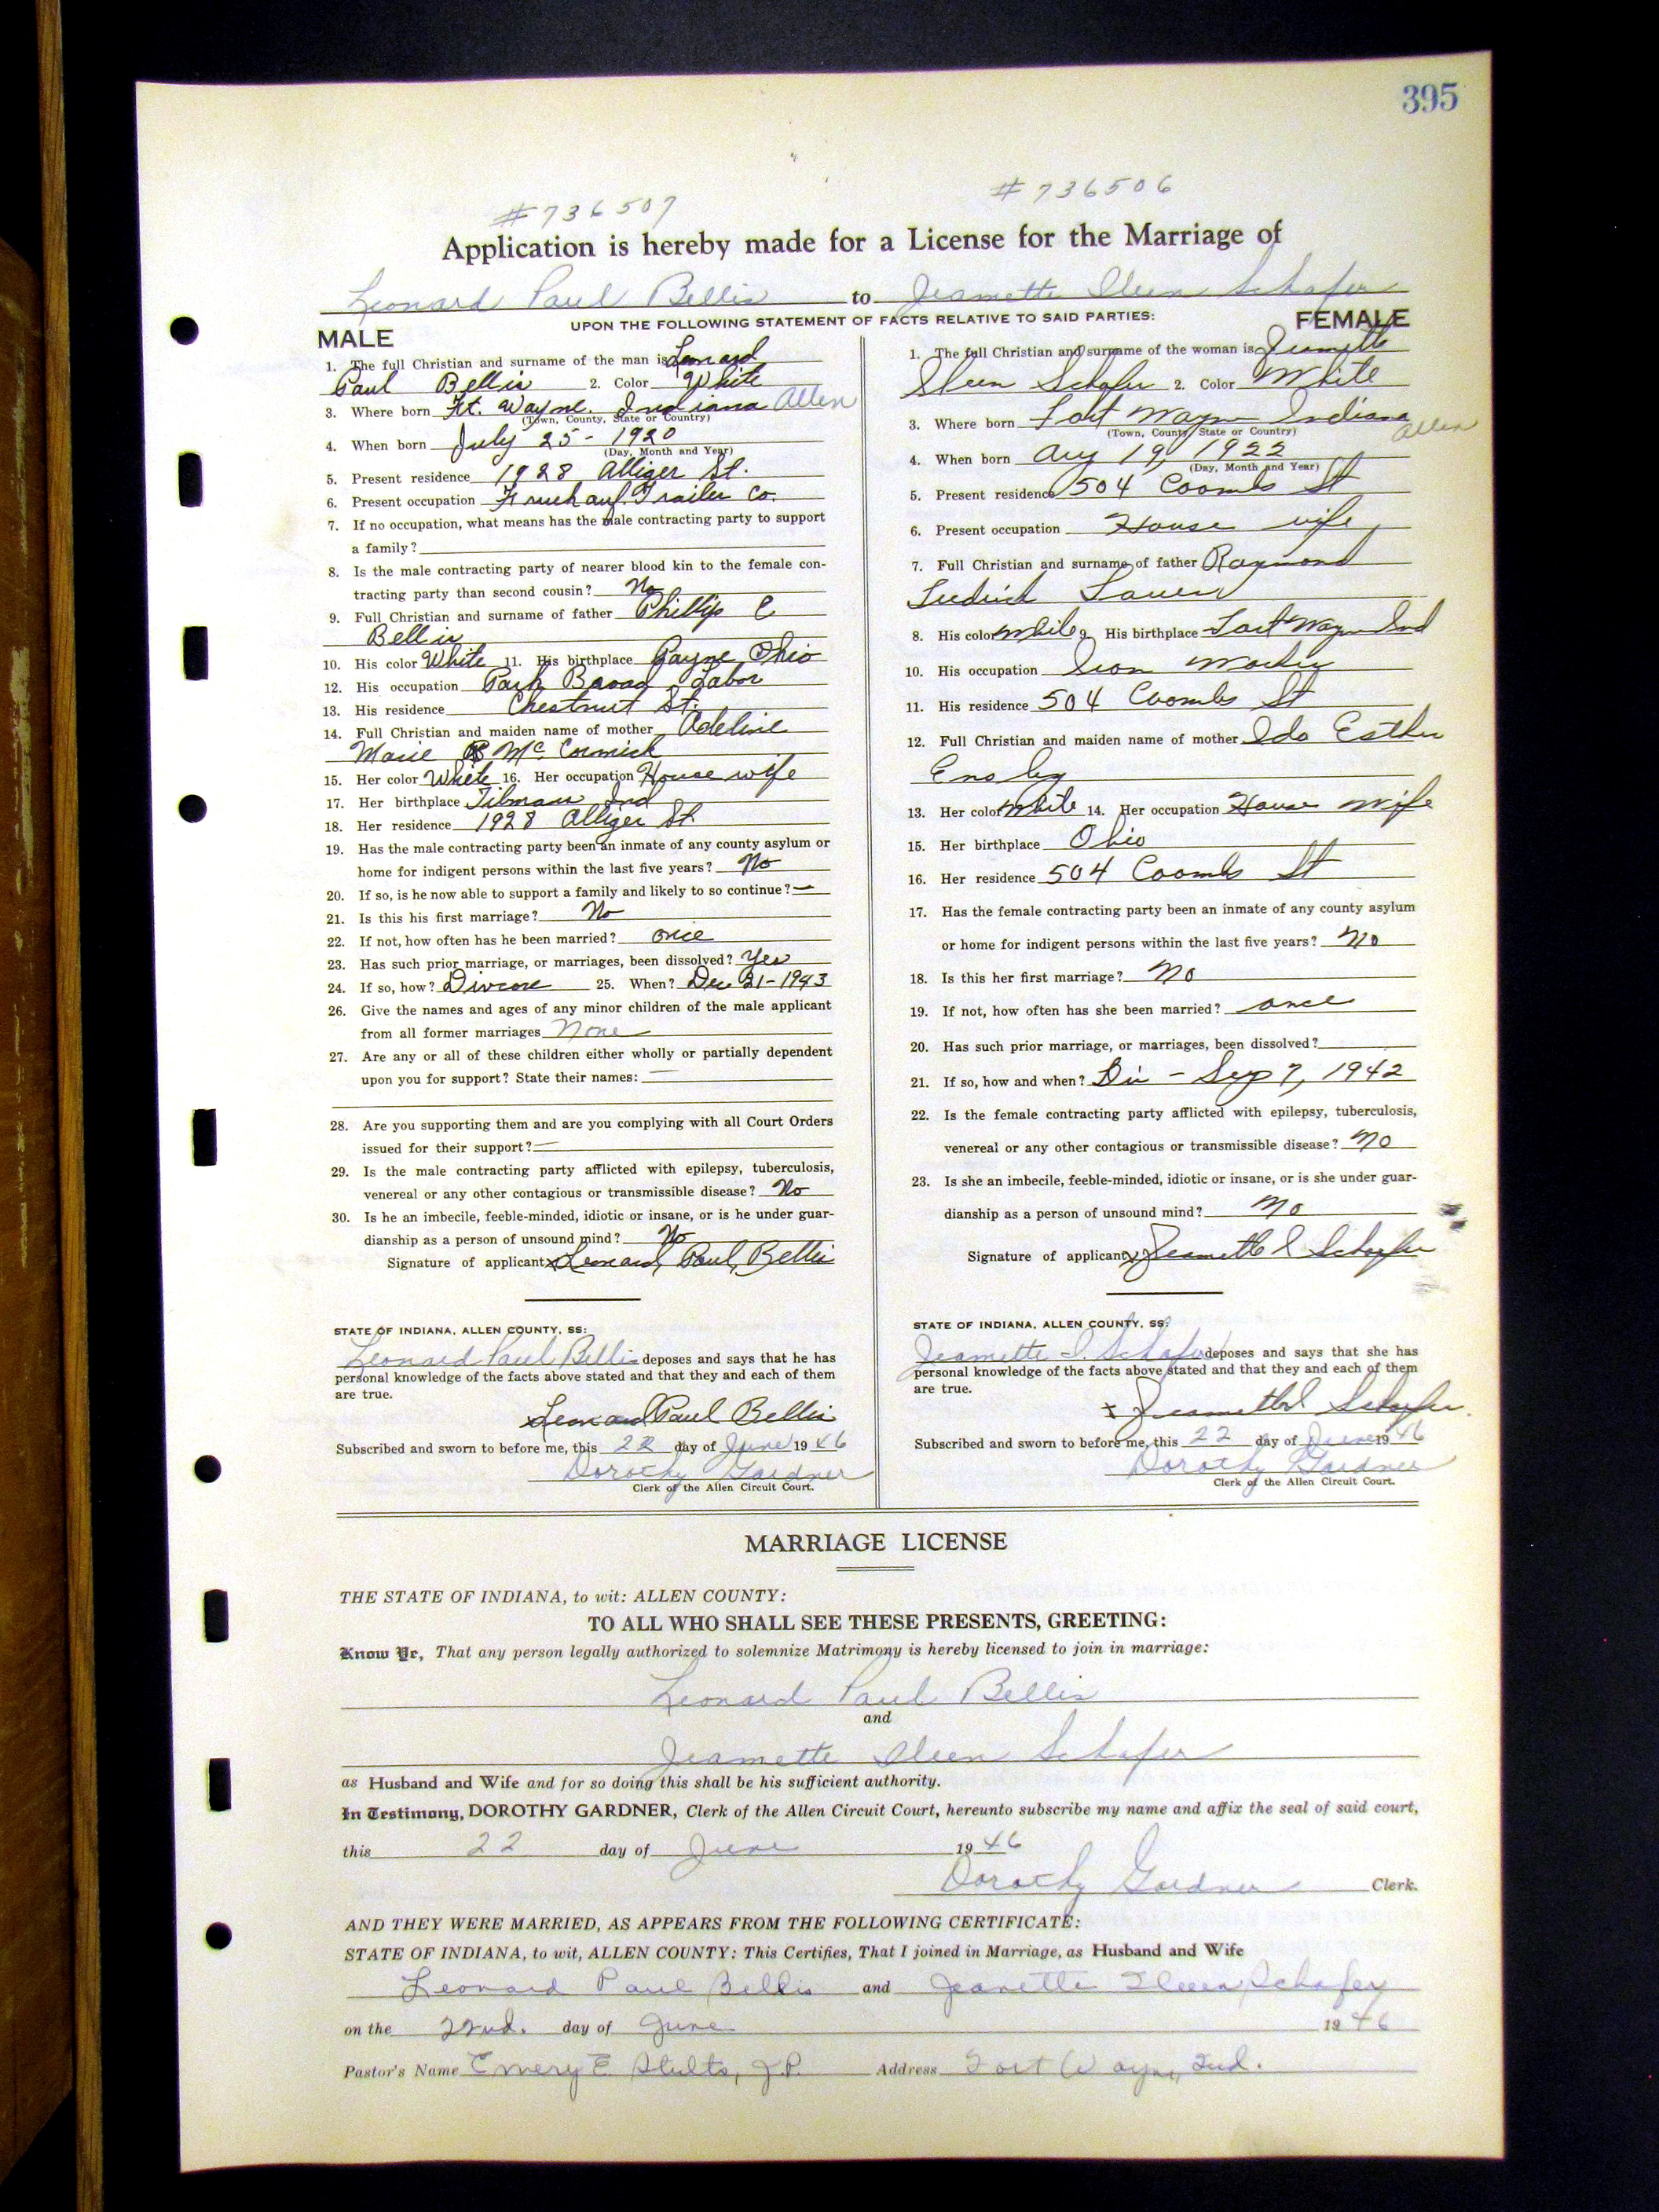 395
#736507
#736506
Application is hereby made for a License for the Marriage of
Leonard Paul Bellis to Jeanette Ileen Schafer
UPON THE FOLLOWING STATEMENT OF FACTS RELATIVE TO SAID PARTIES:
MALE
1. The full Christian and surname of the man is Leonard
Paul Bellis 2. Color White
3. Where born Ft. Wayne, Indiana Allen
(Town, County, State or Country)
4. When born July 25 - 1920
(Day, Month and Year)
5. Present residence 1928 Alliger St.
6. Present occupation Fruehauf Trailer Co.
7. If no occupation, what means has the male contracting party to support
a family?
8. Is the male contracting party of nearer blood kin to the female con-
tracting party than second cousin? No
9. Full Christian and surname of father Phillip C
Bellis
10. His color White 11. His birthplace Payne, Ohio
12. His occupation Park Board Labor
13. His residence Chestnut St.
14. Full Christian and maiden name of mother Adeline
Marie McCormick
15. Her color White 16. Her occupation House wife
17. Her birthplace Tilman Ind
18. Her residence 1928 Alliger St.
19. Has the male contracting party been an inmate of any county asylum or
home for indigent persons within the last five years? No
20. If so, is he now able to support a family and likely to so continue? —
21. Is this his first marriage? No
22. If not, how often has he been married? once
23. Has such prior marriage, or marriages, been dissolved? Yes
24. If so, how? Divorce 25. When? Dec 21-1943
26. Give the names and ages of any minor children of the male applicant
from all former marriages None
27. Are any or all of these children either wholly or partially dependent
upon you for support? State their names: —
28. Are you supporting them and are you complying with all Court Orders
issued for their support? —
29. Is the male contracting party afflicted with epilepsy, tuberculosis,
venereal or any other contagious or transmissible disease? No
30. Is he an imbecile, feeble-minded, idiotic or insane, or is he under guar-
dianship as a person of unsound mind? No
Signature of applicant x Leonard Paul Bellis
STATE OF INDIANA, ALLEN COUNTY, SS:
Leonard Paul Bellis deposes and says that he has
personal knowledge of the facts above stated and that they and each of them
are true.
x Leonard Paul Bellis
Subscribed and sworn to before me, this 22 day of June 19 46
Dorothy Gardner
Clerk of the Allen Circuit Court.
FEMALE
1. The full Christian and surname of the woman is Jeanette
Ileen Schafer 2. Color White
3. Where born Fort Wayne Indiana
(Town, County, State or Country) Allen
4. When born Aug 19, 1922
(Day, Month and Year)
5. Present residence 504 Coombs St
6. Present occupation House wife
7. Full Christian and surname of father Raymond
8. His color White 9. His birthplace Fort Wayne Ind
10. His occupation Iron Worker
11. His residence 504 Coombs St
12. Full Christian and maiden name of mother Ida Esther
Ensley
13. Her color White 14. Her occupation House Wife
15. Her birthplace Ohio
16. Her residence 504 Coombs St
17. Has the female contracting party been an inmate of any county asylum
or home for indigent persons within the last five years? No
18. Is this her first marriage? No
19. If not, how often has she been married? once
20. Has such prior marriage, or marriages, been dissolved?
21. If so, how and when? Div - Sep 7, 1942
22. Is the female contracting party afflicted with epilepsy, tuberculosis,
venereal or any other contagious or transmissible disease? No
23. Is she an imbecile, feeble-minded, idiotic or insane, or is she under guar-
dianship as a person of unsound mind? No
Signature of applicant x Jeanette I Schafer
STATE OF INDIANA, ALLEN COUNTY, SS:
Jeanette I. Schafer deposes and says that she has
personal knowledge of the facts above stated and that they and each of them
are true.
x Jeanette I Schafer
Subscribed and sworn to before me, this 22 day of June 19 46
Dorothy Gardner
Clerk of the Allen Circuit Court.
MARRIAGE LICENSE
THE STATE OF INDIANA, to wit: ALLEN COUNTY:
TO ALL WHO SHALL SEE THESE PRESENTS, GREETING:
Know Ye, That any person legally authorized to solemnize Matrimony is hereby licensed to join in marriage:
Leonard Paul Bellis
and
Jeanette Ileen Schafer
as Husband and Wife and for so doing this shall be his sufficient authority.
In Testimony, DOROTHY GARDNER, Clerk of the Allen Circuit Court, hereunto subscribe my name and affix the seal of said court,
this 22 day of June 19 46
Dorothy Gardner Clerk.
AND THEY WERE MARRIED, AS APPEARS FROM THE FOLLOWING CERTIFICATE:
STATE OF INDIANA, to wit, ALLEN COUNTY: This Certifies, That I joined in Marriage, as Husband and Wife
Leonard Paul Bellis and Jeanette Ileen Schafer
on the 22nd. day of June 19 46
Pastor's Name Emery E. Stults, J.P. Address Fort Wayne, Ind.